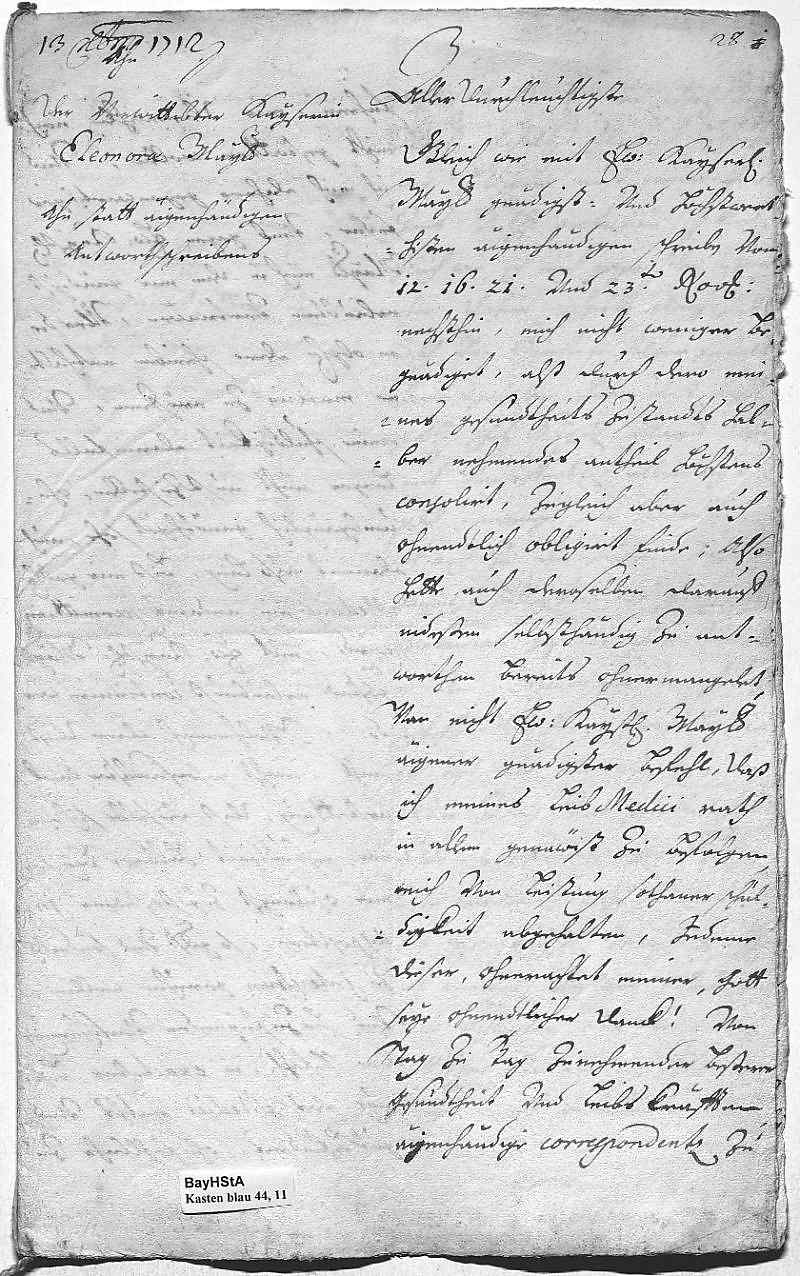 13 Xbris 1712
28
Der Verwittibter Kayserin
Eleonoræ Mayst
An statt äigenhändigen
Antwortschreibens
Aller Durchleuchtigste
Gleich wie mit Ew: Kayserl:
Mayst gnädigst- Und höchstwert-
histen äigenhändigen schreiben Vom
12. 16. 21. Und 23.t Nov:
nechsthin, mich nicht weniger be-
gnädiget, alß durch dero mei-
nes gesundtheits Zustandts hal-
ber nehmendes antheil höchstens
consolirt, Zugleich aber auch
ohnendtlich obligirt finde; Also
hette auch deroselben darauf
indeßen selbsthändig Zu ant-
worthen bereits ohnermangelet,
Wan nicht Ew: Kayßl. Mayst
äigener gnädigster befehl, daß
ich meines Leib Medici rath
in allem gemäeß Zu befolgen,
mich Von Leistung sothaner schul-
digkeit abgehalten, Indeme
dieser, ohnerachtet meiner, Gott
seye ohnendtlicher Danck! Von
Tag Zu Tag Zunehmender besserer
Gesundtheit Und Leibs kräfften
äigenhändige correspondentz Zu
BayHStA
Kasten blau 44, 11